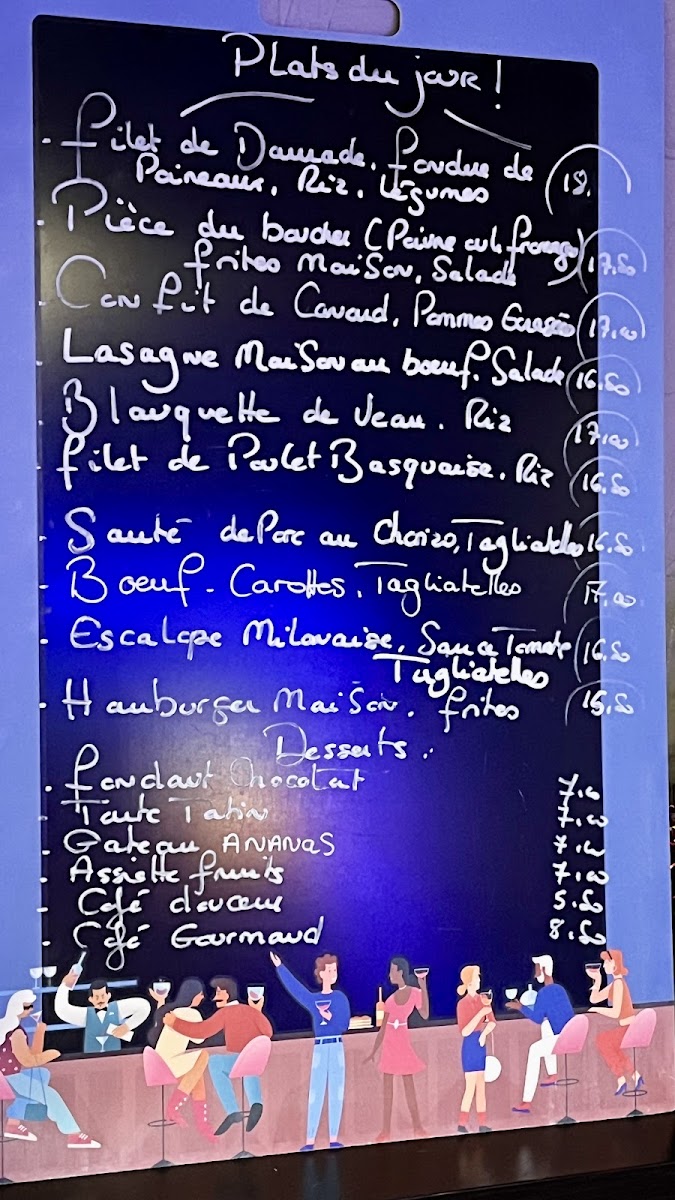 Plats du jour !
- Filet de Daurade, fondue de 18.
Poireaux, Riz, Légumes
- Pièce du boucher (Poivre ou fromage) 17.50
frites Maison, Salade
- Confit de Canard, Pommes 17.00
- Lasagne Maison au boeuf. Salade 16.50
- Blanquette de Veau. Riz 17.00
- filet de Poulet Basquaise. Riz 16.50
- Sauté de Porc au Chorizo, Tagliatelles 16.50
- Boeuf - Carottes, Tagliatelles 17.00
- Escalope Milanaise, Sauce Tomate 16.50
Tagliatelles
- Hamburger Maison. frites 15.50
Desserts.
- fondant Chocolat 7.00
- Tarte Tatin 7.00
- Gateau ANANAS 7.00
- Assiette fruits 7.00
- Café douceur 5.50
- Café Gourmand 8.50